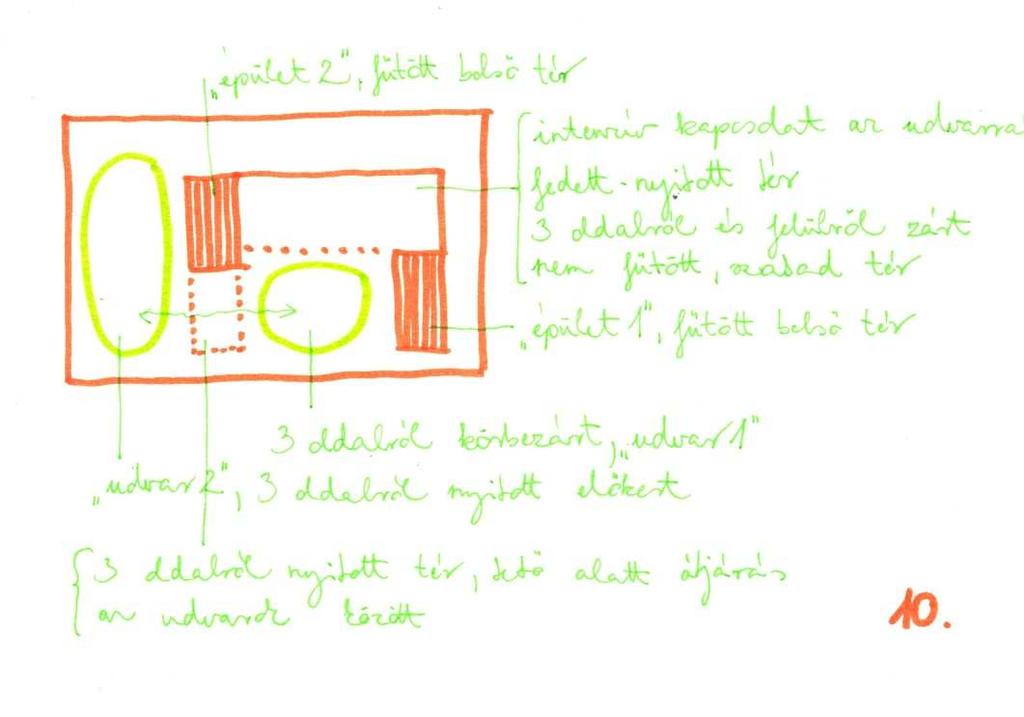 „épület 2”, fűtött belső tér
intenzív kapcsolat az udvarra
fedett-nyitott tér
3 oldalról és felülről zárt
nem fűtött, szabad tér
„épület 1”, fűtött belső tér
3 oldalról körbezárt, „udvar 1”
„udvar 2”, 3 oldalról nyitott előkert
3 oldalról nyitott tér, tető alatt átjárás
az udvarok között
10.